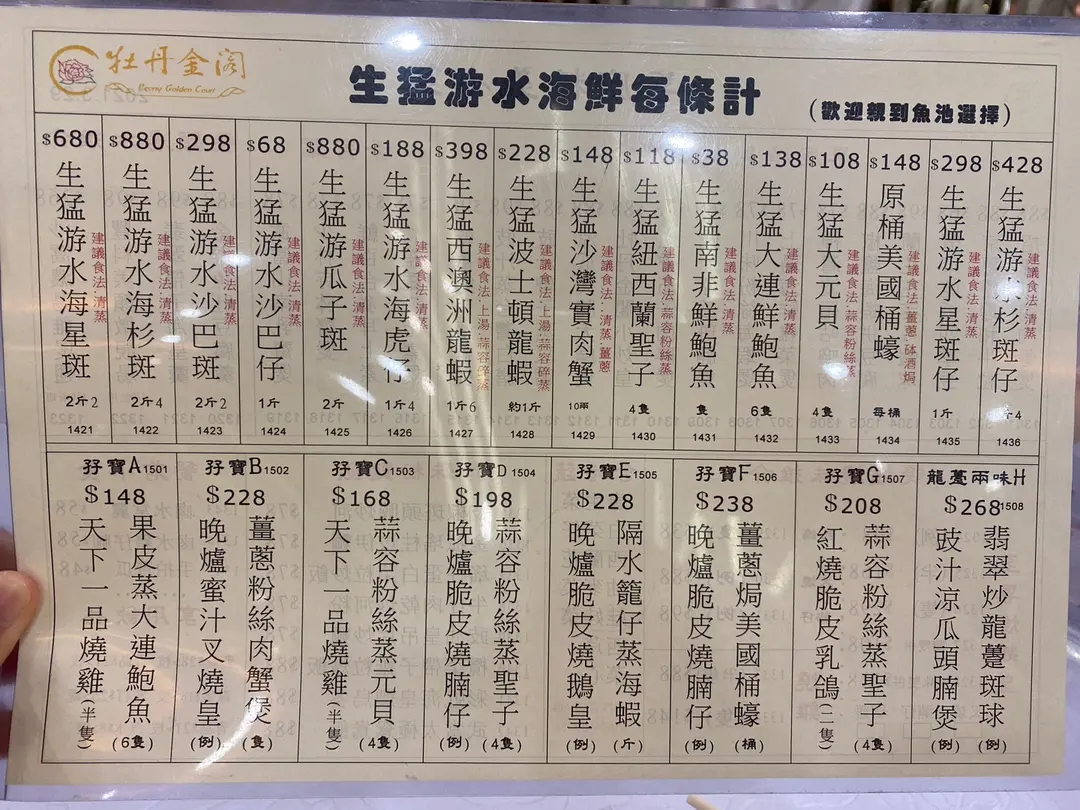 牡丹金閣
Peony Golden Court
生猛游水海鮮每條計
(歡迎親到魚池選擇)
$680
生猛游水海星斑
建議食法:清蒸
2斤2
1421
$880
生猛游水海杉斑
建議食法:清蒸
2斤4
1422
$298
生猛游水沙巴斑
建議食法:清蒸
2斤2
1423
$68
生猛游水沙巴仔
建議食法:清蒸
1斤
1424
$880
生猛游瓜子斑
建議食法:清蒸
2斤
1425
$188
生猛游水海虎仔
建議食法:清蒸
1斤4
1426
$398
生猛西澳洲龍蝦
建議食法:上湯 蒜容碎蒸
1斤6
1427
$228
生猛波士頓龍蝦
建議食法:上湯 蒜容碎蒸
約1斤
1428
$148
生猛沙灣實肉蟹
建議食法:清蒸 薑蔥
10兩
1429
$118
生猛紐西蘭聖子
建議食法:蒜容粉絲蒸
4隻
1430
$38
生猛南非鮮鮑魚
建議食法:清蒸
隻
1431
$138
生猛大連鮮鮑魚
建議食法:清蒸
6隻
1432
$108
生猛大元貝
建議食法:蒜容粉絲蒸
4隻
1433
$148
原桶美國桶蠔
建議食法:薑蔥 砵酒焗
每桶
1434
$298
生猛游水星斑仔
建議食法:清蒸
1斤
1435
$428
生猛游水杉斑仔
建議食法:清蒸
斤4
1436
孖寶A1501
$148
果皮蒸大連鮑魚(6隻)
天下一品燒雞(半隻)
孖寶B1502
$228
薑蔥粉絲肉蟹煲(隻)
晚爐蜜汁叉燒皇(例)
孖寶C1503
$168
蒜容粉絲蒸元貝(4隻)
天下一品燒雞(半隻)
孖寶D1504
$198
蒜容粉絲蒸聖子(4隻)
晚爐脆皮燒腩仔(例)
孖寶E1505
$228
隔水籠仔蒸海蝦(斤)
晚爐脆皮燒鵝皇(例)
孖寶F1506
$238
薑蔥焗美國桶蠔(桶)
晚爐脆皮燒腩仔(例)
孖寶G1507
$208
蒜容粉絲蒸聖子(4隻)
紅燒脆皮乳鴿(二隻)
龍躉兩味廿
$268 1508
翡翠炒龍躉斑球(例)
豉汁涼瓜頭腩煲(例)